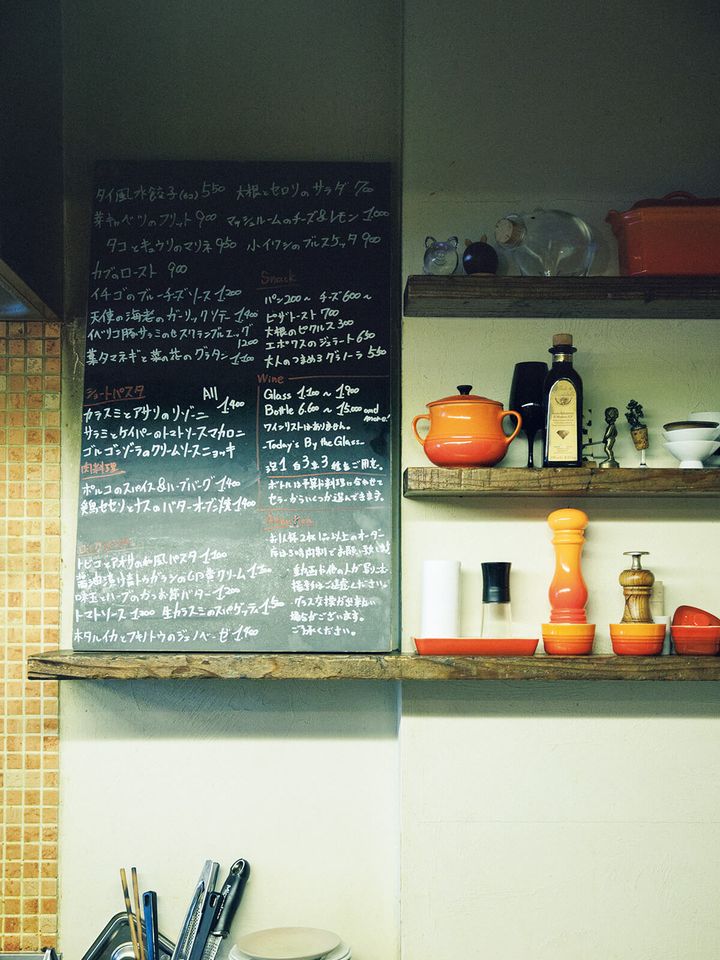 タイ風水餃子(6コ) 550 大根とセロリのサラダ 700
芽キャベツのフリット 900 マッシュルームのチーズ&レモン 1000
タコとキュウリのマリネ 950 小イワシのブルスケッタ 900
カブのロースト 900
イチゴのブルーチーズソース 1200
天使の海老のガーリックソテー 1400
イベリコ豚サラミのせスクランブルエッグ
1200
葉タマネギと菜の花のグラタン 1100
Snack
パン 200〜 チーズ 600〜
ピザトースト 700
大根のピクルス 300
エポワスのジェラート 650
大人のつまめる グラノーラ 550
ショートパスタ All
カラスミとアサリのリゾーニ 1400
サラミとケイパーのトマトソースマカロニ
ゴルゴンゾーラのクリームソースニョッキ
肉料理
ポルコのスパイス&ハーブバーグ 1400
鶏セセリとナスのバターオーブン焼 1400
Wine
Glass 1100〜1900
Bottle 6.600〜15.000 and more!
ワインリストはありません。
-Today's By the Glass-
泡1 白3 赤3 種ご用意。
ボトルは予算料理に合わせて
セラーからいくつか選んできます。
トビコとアオリの和風パスタ 1100
味玉とハーブのかつお節バター 1200
トマトソース 1200 生カラスミのスパゲティ 1500
ホタルイカとフキノトウのジェノベーゼ 1400
お1人様2枚1品以上のオーダー
動画
ご了承ください。